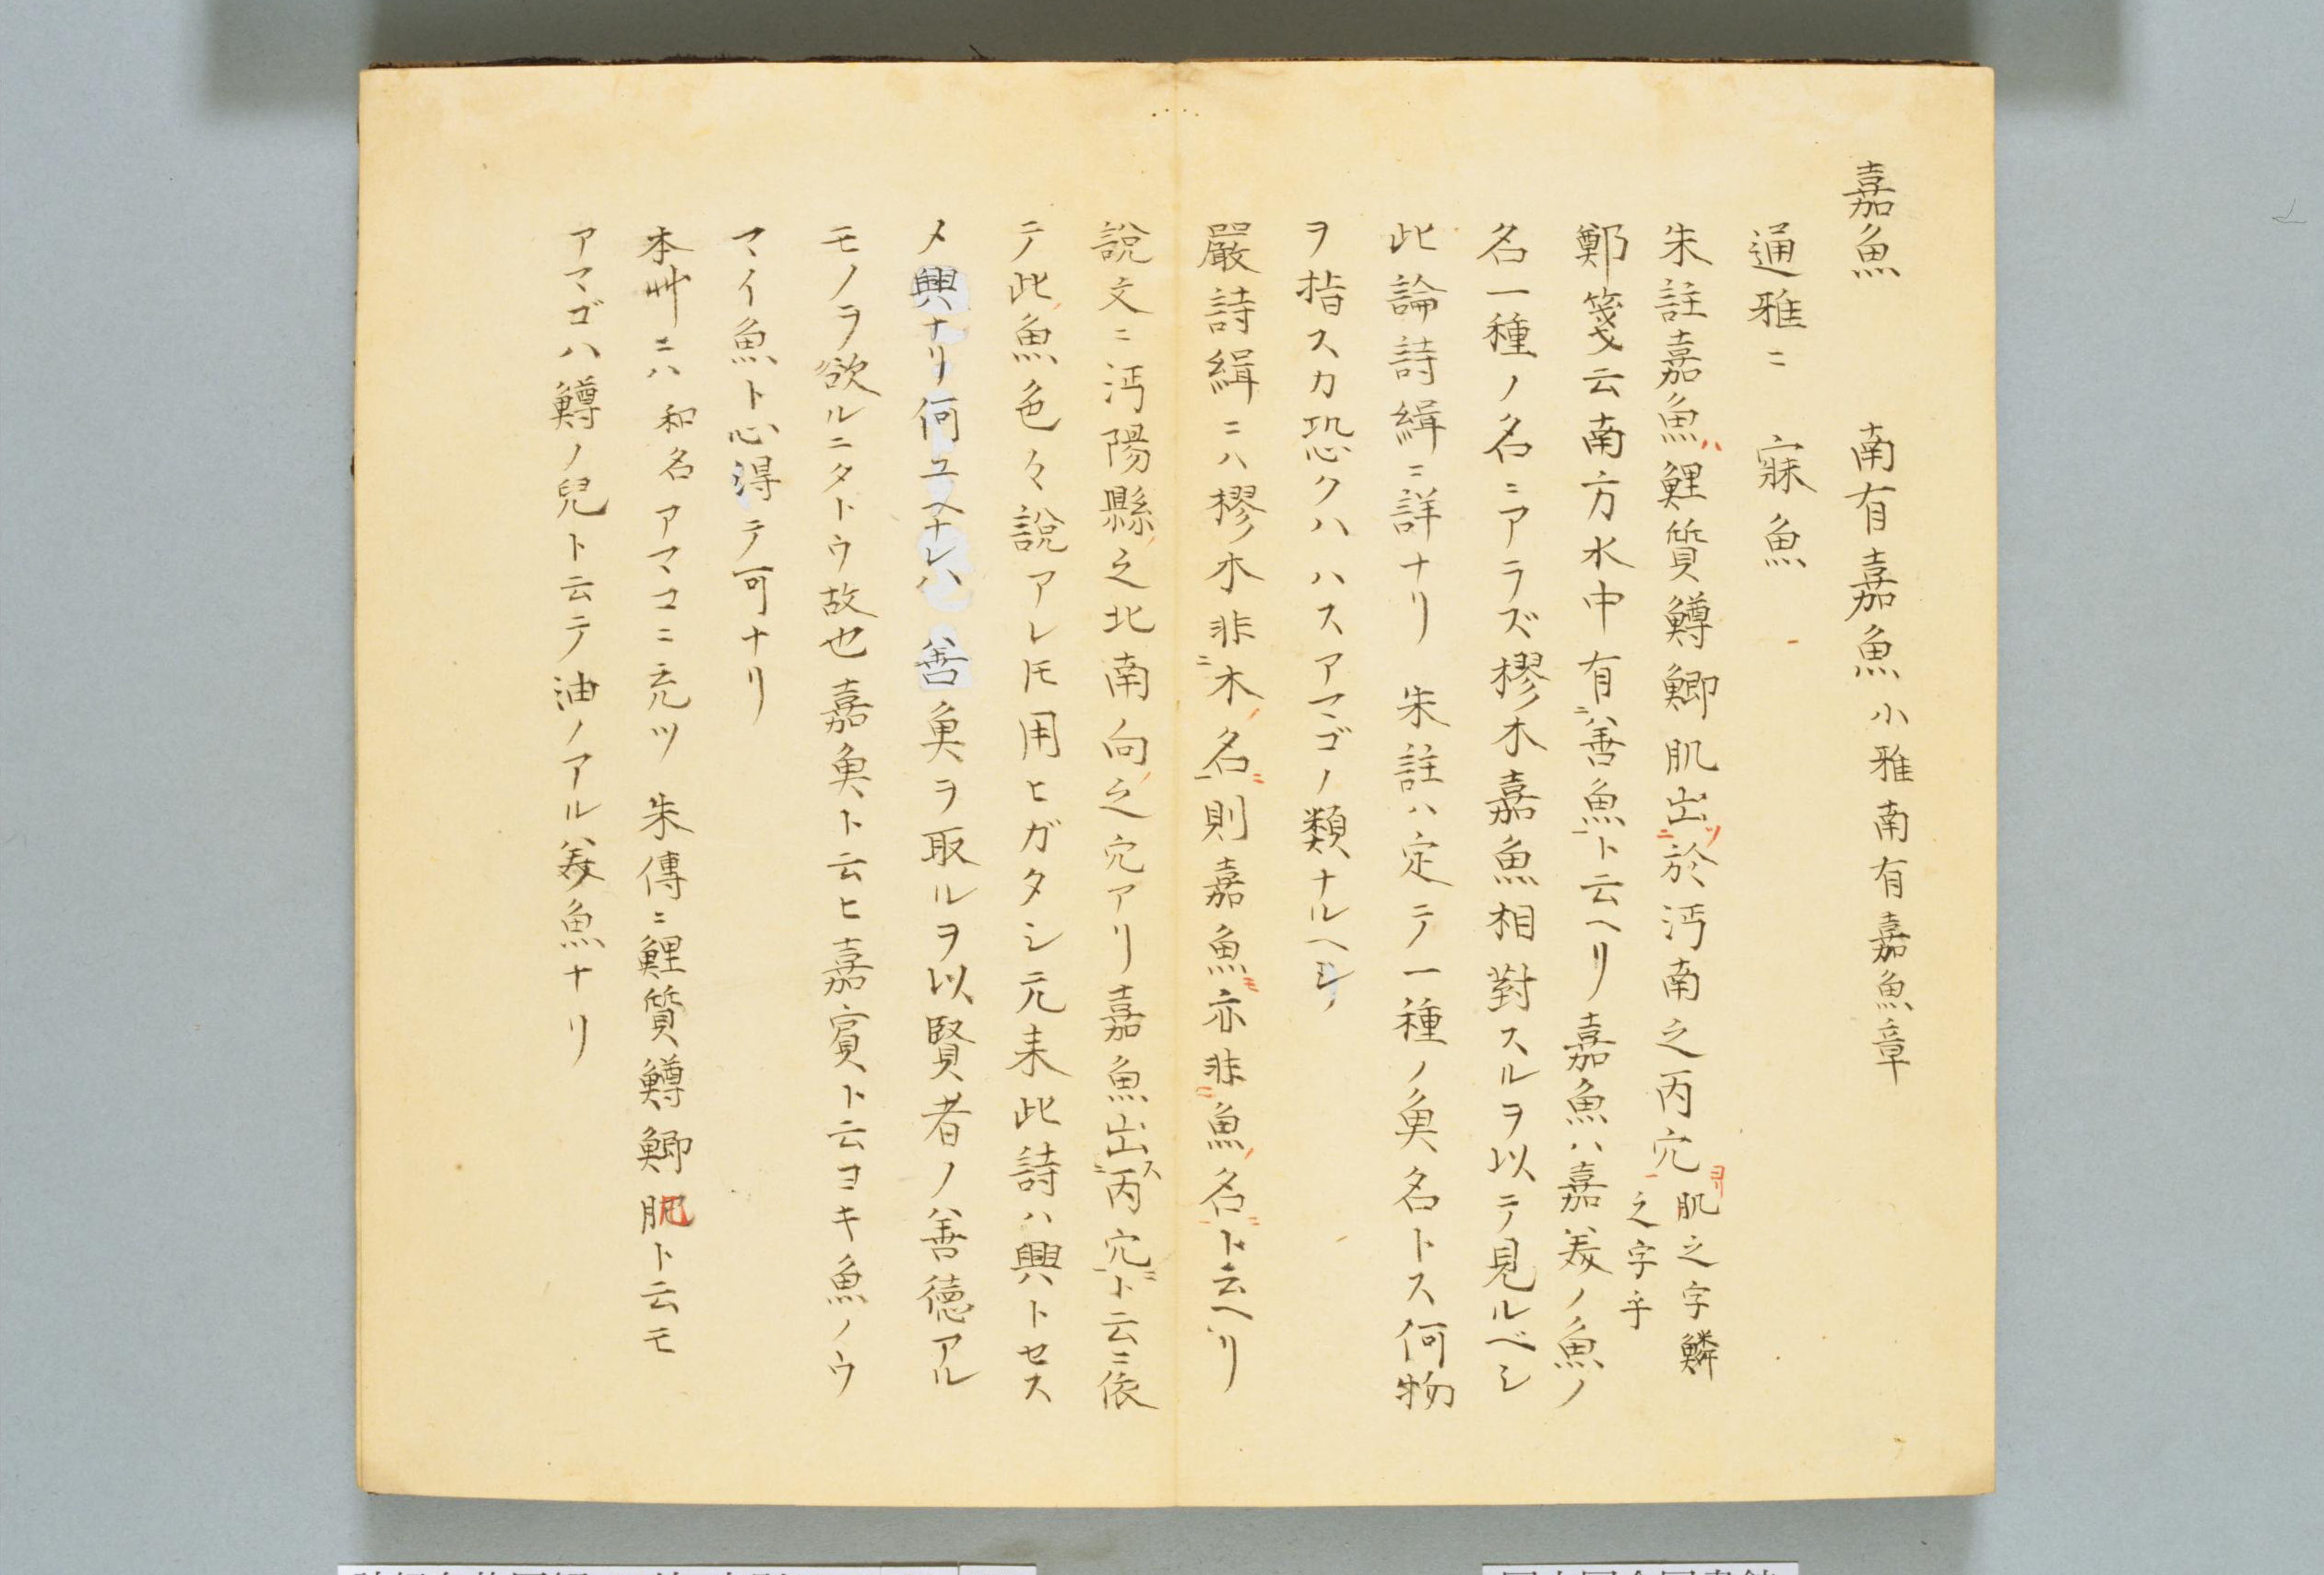 嘉魚　南有嘉魚 小雅南有嘉魚章
通雅ニ　寐魚
朱註嘉魚ハ鯉質鱒鯽肌出ツ於沔南之丙穴ヨリ 肌之字鱗之字乎
鄭箋云南方水中有善魚ト云ヘリ嘉魚ハ嘉美ノ魚ノ
名一種ノ名ニアラズ樛木嘉魚相對スルヲ以テ見ルベシ
此論詩緝ニ詳ナリ　朱註ハ定テ一種ノ魚名トス何物
ヲ指スカ恐クハハスアマゴノ類ナルヘシ
嚴詩緝ニハ樛木非木名則嘉魚モ亦非魚名ト云ヘリ
説文ニ沔陽縣之北南向之穴アリ嘉魚出ス丙穴ニト云ニ依
テ此魚色々説アレ𪜈用ヒガタシ元来此詩ハ興トセス
メ興ナリ何ユヘナレハ善魚ヲ取ルヲ以賢者ノ善徳アル
モノヲ欲ルニタトウ故也嘉魚ト云ヒ嘉賓ト云ヨキ魚ノウ
マイ魚ト心得テ可ナリ
本艸ニハ和名アマコニ充ツ　朱傳ニ鯉質鱒鯽肥ト云モ
アマゴハ鱒ノ兒ト云テ油ノアル美魚ナリ